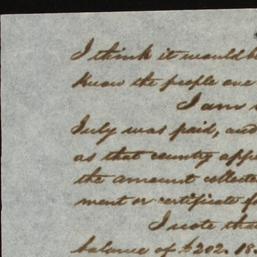 I think it would b
know the people are
I am
July was paid, and
as that county app
the amount collecte
ment or certificate f
I note tha
balance of $202.18